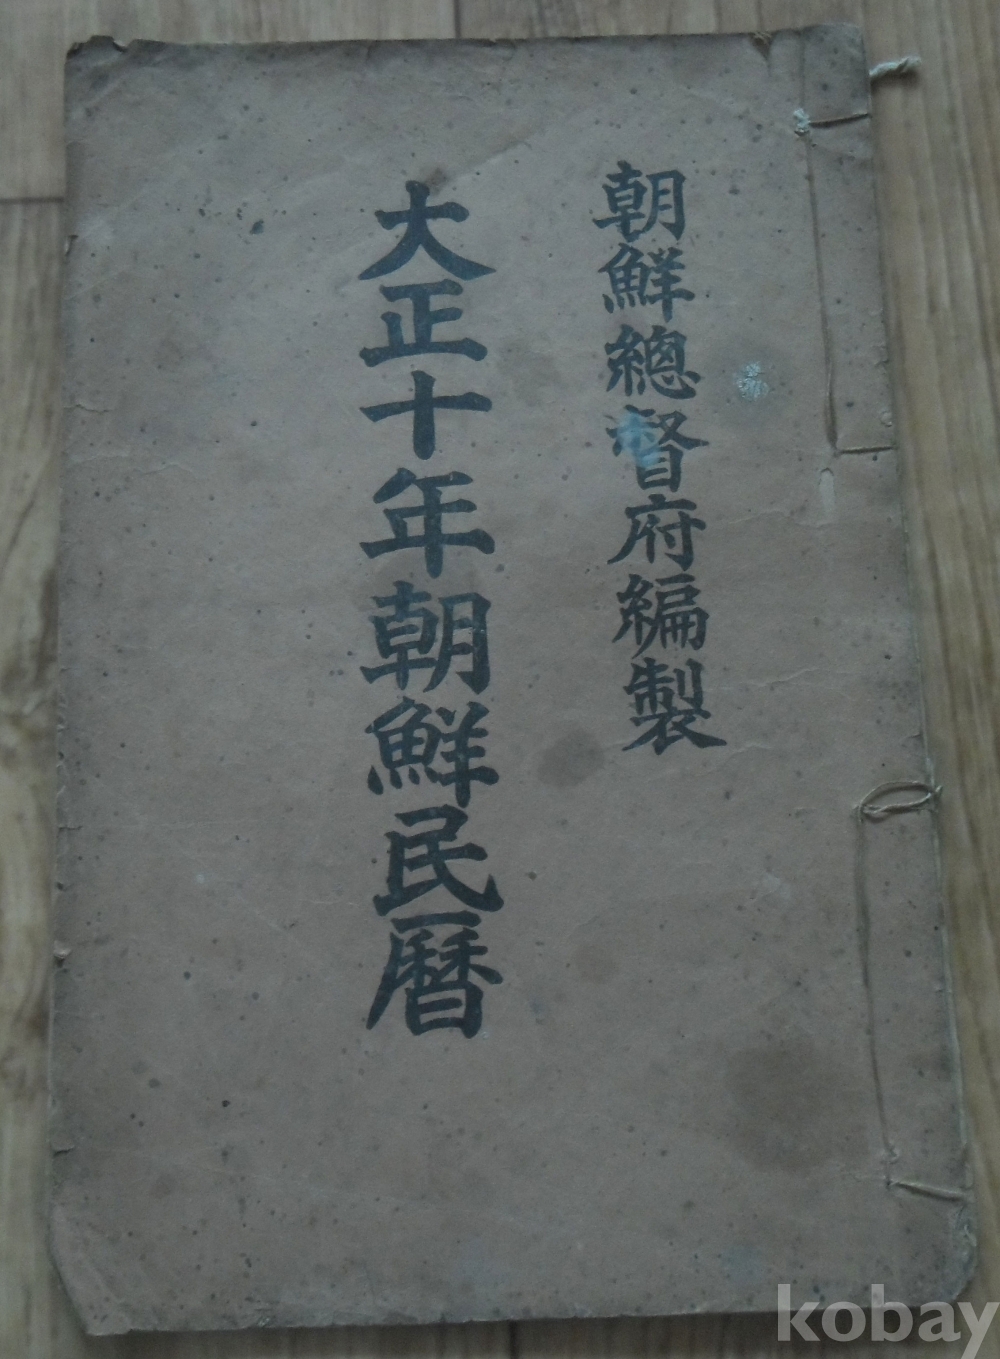 朝鮮總督府編製
大正十年朝鮮民曆
kobay